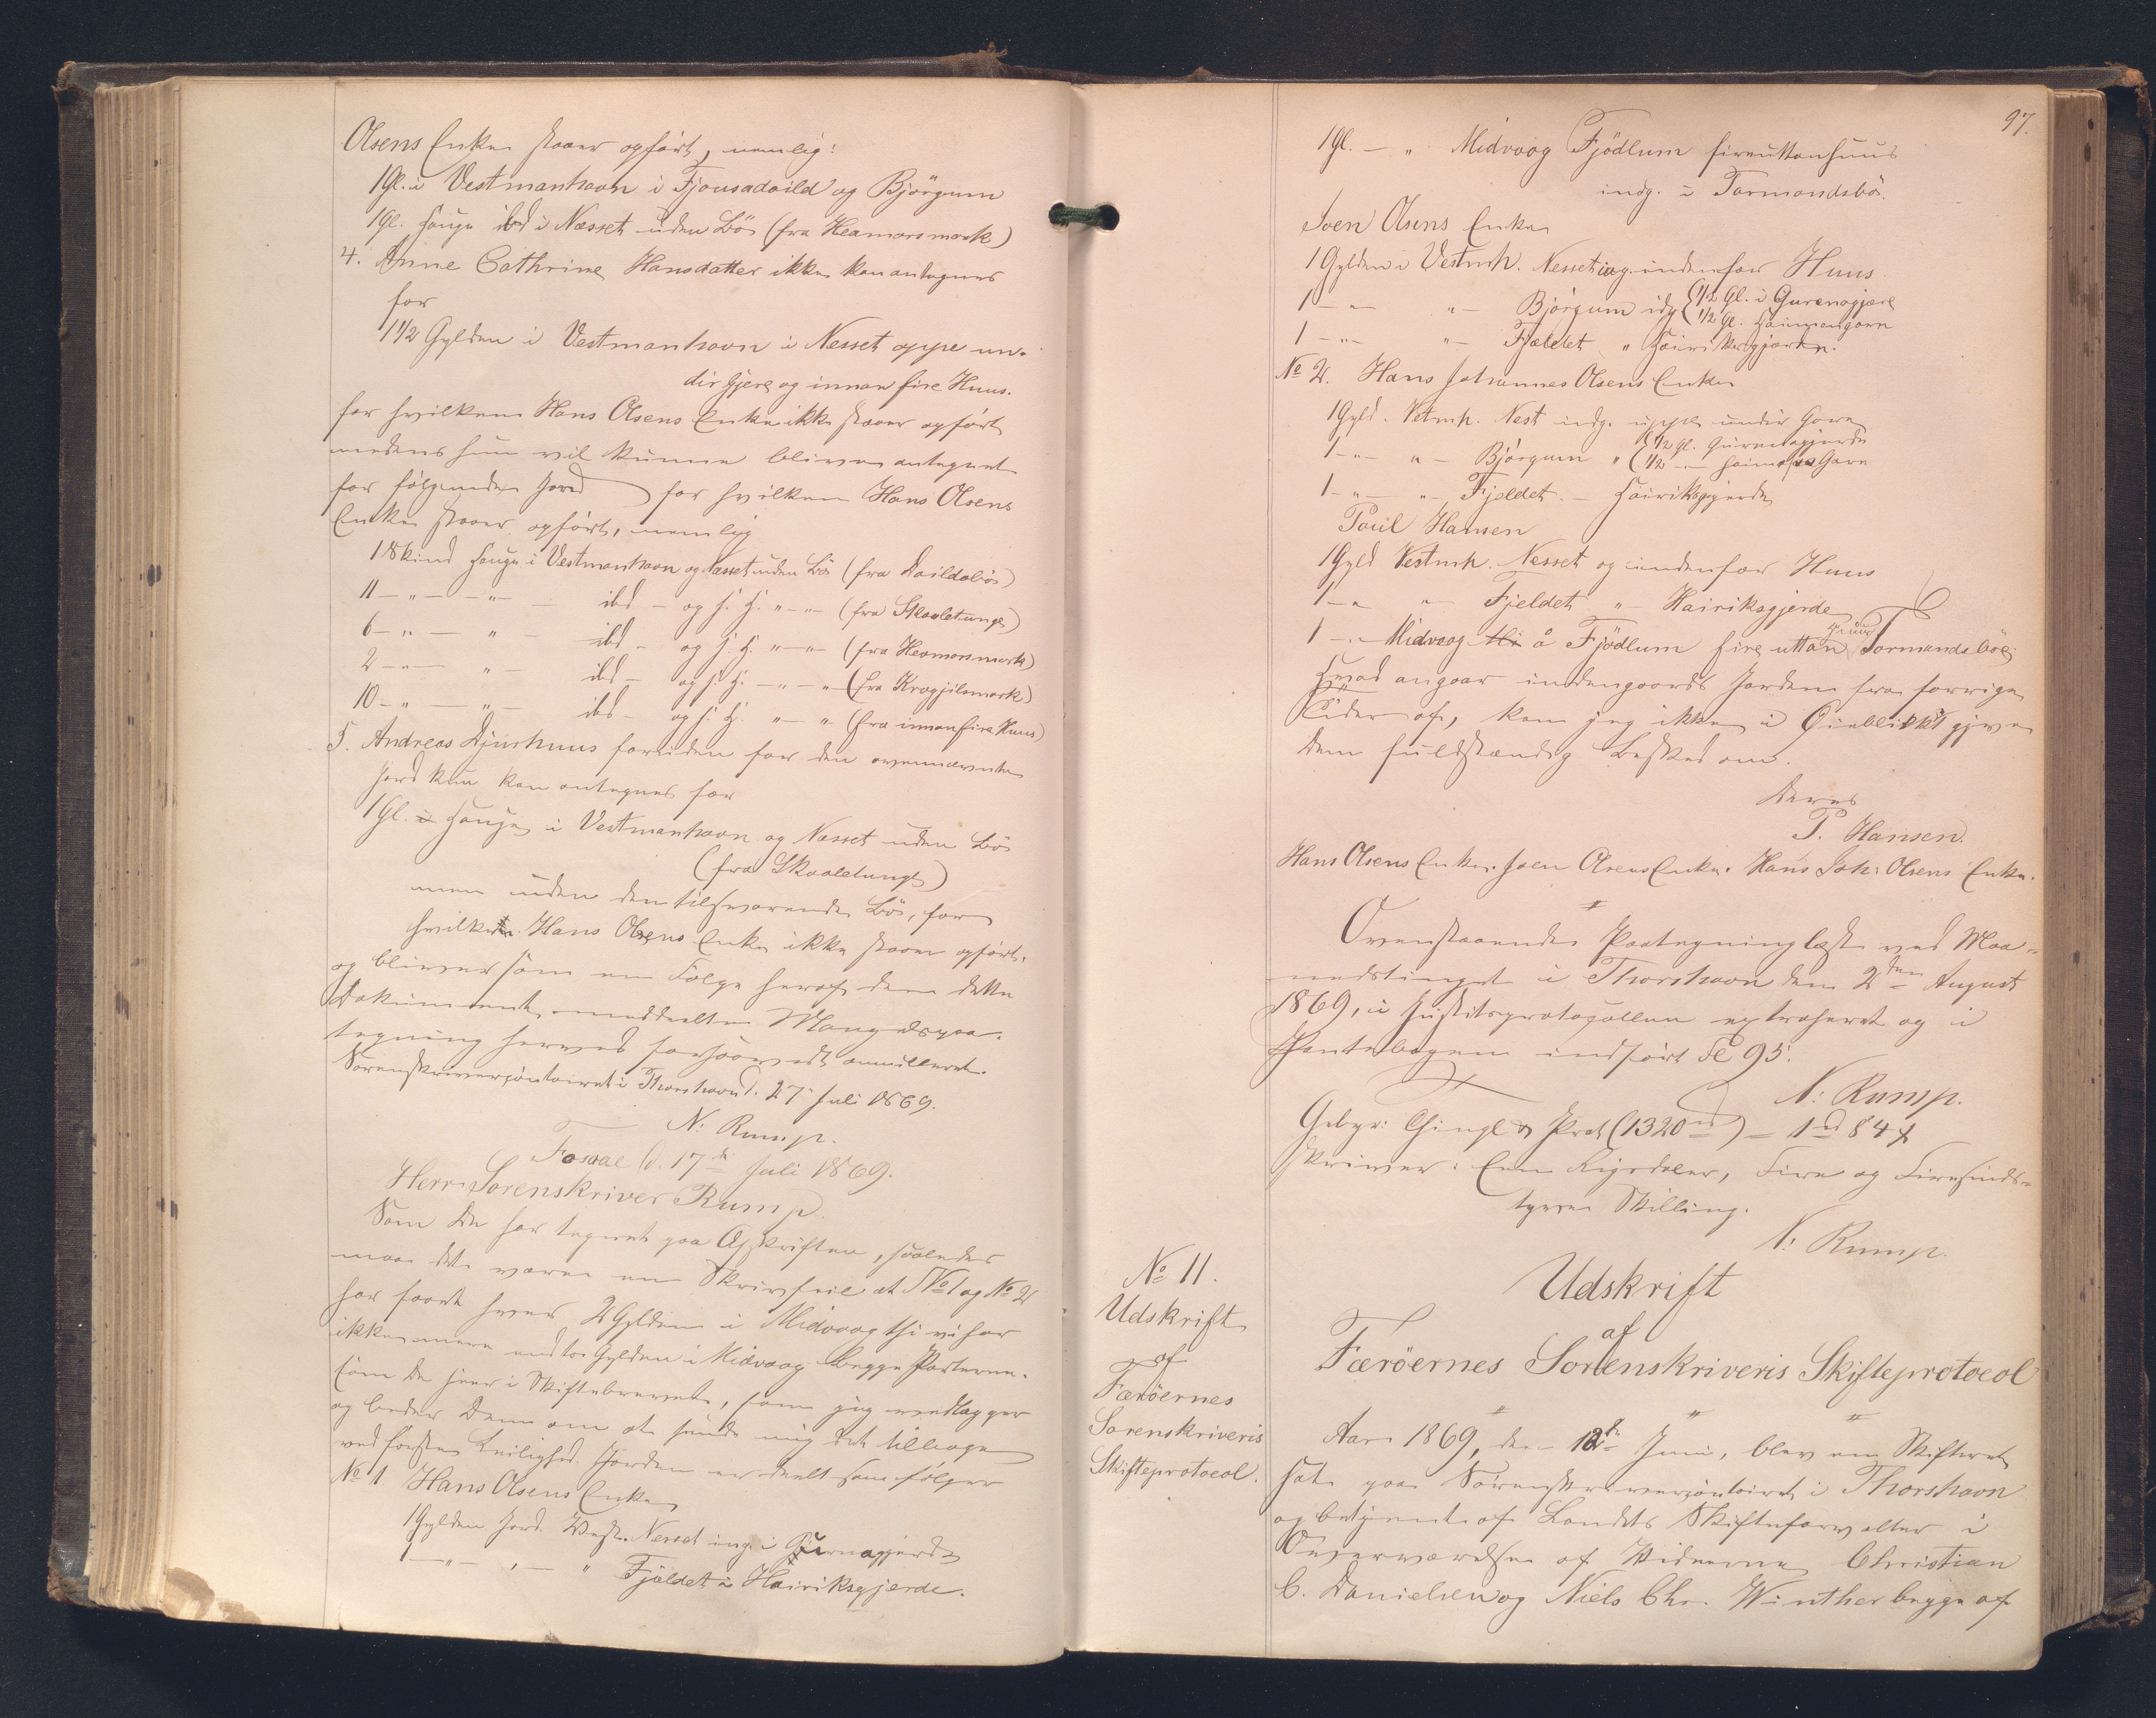 Olsens Enke staaer opført, nemlig:
1 Gl. i Vestmanhavn i Fjousadaild og Björgum
1 Gl. Hauge ibd i Nesset uden Bö (fra Heamarsmark)
4. Anne Cathrine Hansdatter ikke kan antegnes
for
1 1/2 Gylden i Vestmanhavn i Nesset oppe un-
dir Gjere og innan fire Huus.
for hvilken Hans Olsens Enke ikke staaer opført
medens hun vil kunne blive antegnet
for følgende Jord for hvilken Hans Olsens
Enke staaer opført, nemlig
1 Skind Hauge i Vestmanhavn og Nesset uden Bö (fra Daildabö)
11 — " — " — ibd — og s. H. " — " — (fra Skaaletunge)
6 — " — " — ibd — og s. H. " — " — (fra Heamarsmark)
2 — " — " — ibd — og s. H. — " — " (fra Krogjilsmark)
10 — " — " — ibd — og s. H. " — " (fra innanfire Huus)
5. Andreas Djurhuus foruden for den ovennævnte
Jord kun kan antegnes for
1 Gl. i Hauge i Vestmanhavn og Nesset uden Bö
(fra Skaaletunge)
men uden den tilsvarende Bö, for
hvilken Hans Olsens Enke ikke staaer opført.
og bliver som en Følge heraf den dette
Dokument meddeelte Mangelspaa-
tegning herved forsaavidt annulleret.
Sorenskrivercontoiret i Thorshavn d. 27 Juli 1869.
N: Rump.
Fosaae d. 17de Juli 1869.
Herr Sorenskriver Rump.
Som De har tegnet paa Afskriften, saaledes
maa det være en Skrivfeil at No 1 og No 2
har faaet hver 2 Gylden i Midvaag thi vi har
ikke mere end to Gylden i Midvaag begge Parterne.
som De seer i Skiftebrevet, som jeg vedlægger
og beder Dem om at sende mig det tilbage
ved første Leilighed. Jorden er deelt som følger
No 1. Hans Olsens Enke
1 Gylden Jord. Vestm. Nesset ing. i Gurnagjerde
1 — " — , — " Fjeldet i Hairiksgjerde.
97.
1 Gl. — " Midvaag Fjödlum fireuttanhuus
indg. i Tormandsbö.
Joen Olsens Enke
1 Gylden i Vestmh. Nesset ing. indenfor Huus
1 — " — " — Björgum idg {1/2 Gl. i Gurenagjære
1/2 Gl. Haimangara
1 — " — " — Fjældet " Hairiksgjæren.
No 2. Hans Johannes Olsens Enke
1 Gyld. Vetmh. Nest indg. uppe undir Gara
1 — " — " — Björgum " {1/2 Gl. Gurenagjærde
1/2 — " — Haimara Gara
1 — " — " — Fjeldet. — Hairiksgjerde
Poul Hansen
1 Gyld Vestmh. Nesset og indenfor Huus
1 — " " — Fjeldet " — Hairiksgjerde
1 — " Midvaag Mi å Fjödlum fire uttan Huus Tormandsböe;
Hvad angaar indengaards Jorden fra forrige
Tider af, kan jeg ikke i Øieblikket give
Dem fuldstændig Besked om.
Deres
P. Hansen.
Hans Olsens Enke. Joen Olsens Enke. Hans Joh: Olsens Enke.
Ovenstaaende Paategning læst ved Maa-
nedstinget i Thorshavn den 2den August
1869, i Justitsprotocollen extraheret og i
Pantebogen indført Fol 95.
N: Rump.
Gebyr: Thingl & Prot (1320 rd) — 1 rd 84 s
skriver: Een Rigsdaler, Fire og Firesinds-
tyve Skilling.
N: Rump.
No 11.
Udskrift
af
Færöernes
Sorenskriveris
Skifteprotocol.
Udskrift
af
Færöernes Sorenskriveris Skifteprotocol
Aar 1869, den 12te Juni, blev en Skifteret
sat paa Sorenskrivercontoiret i Thorshavn
og betjent af Landets Skifteforvalter i
Overværelse af Vidnerne Christian
C. Danielsen og Niels Chr. Winther begge af